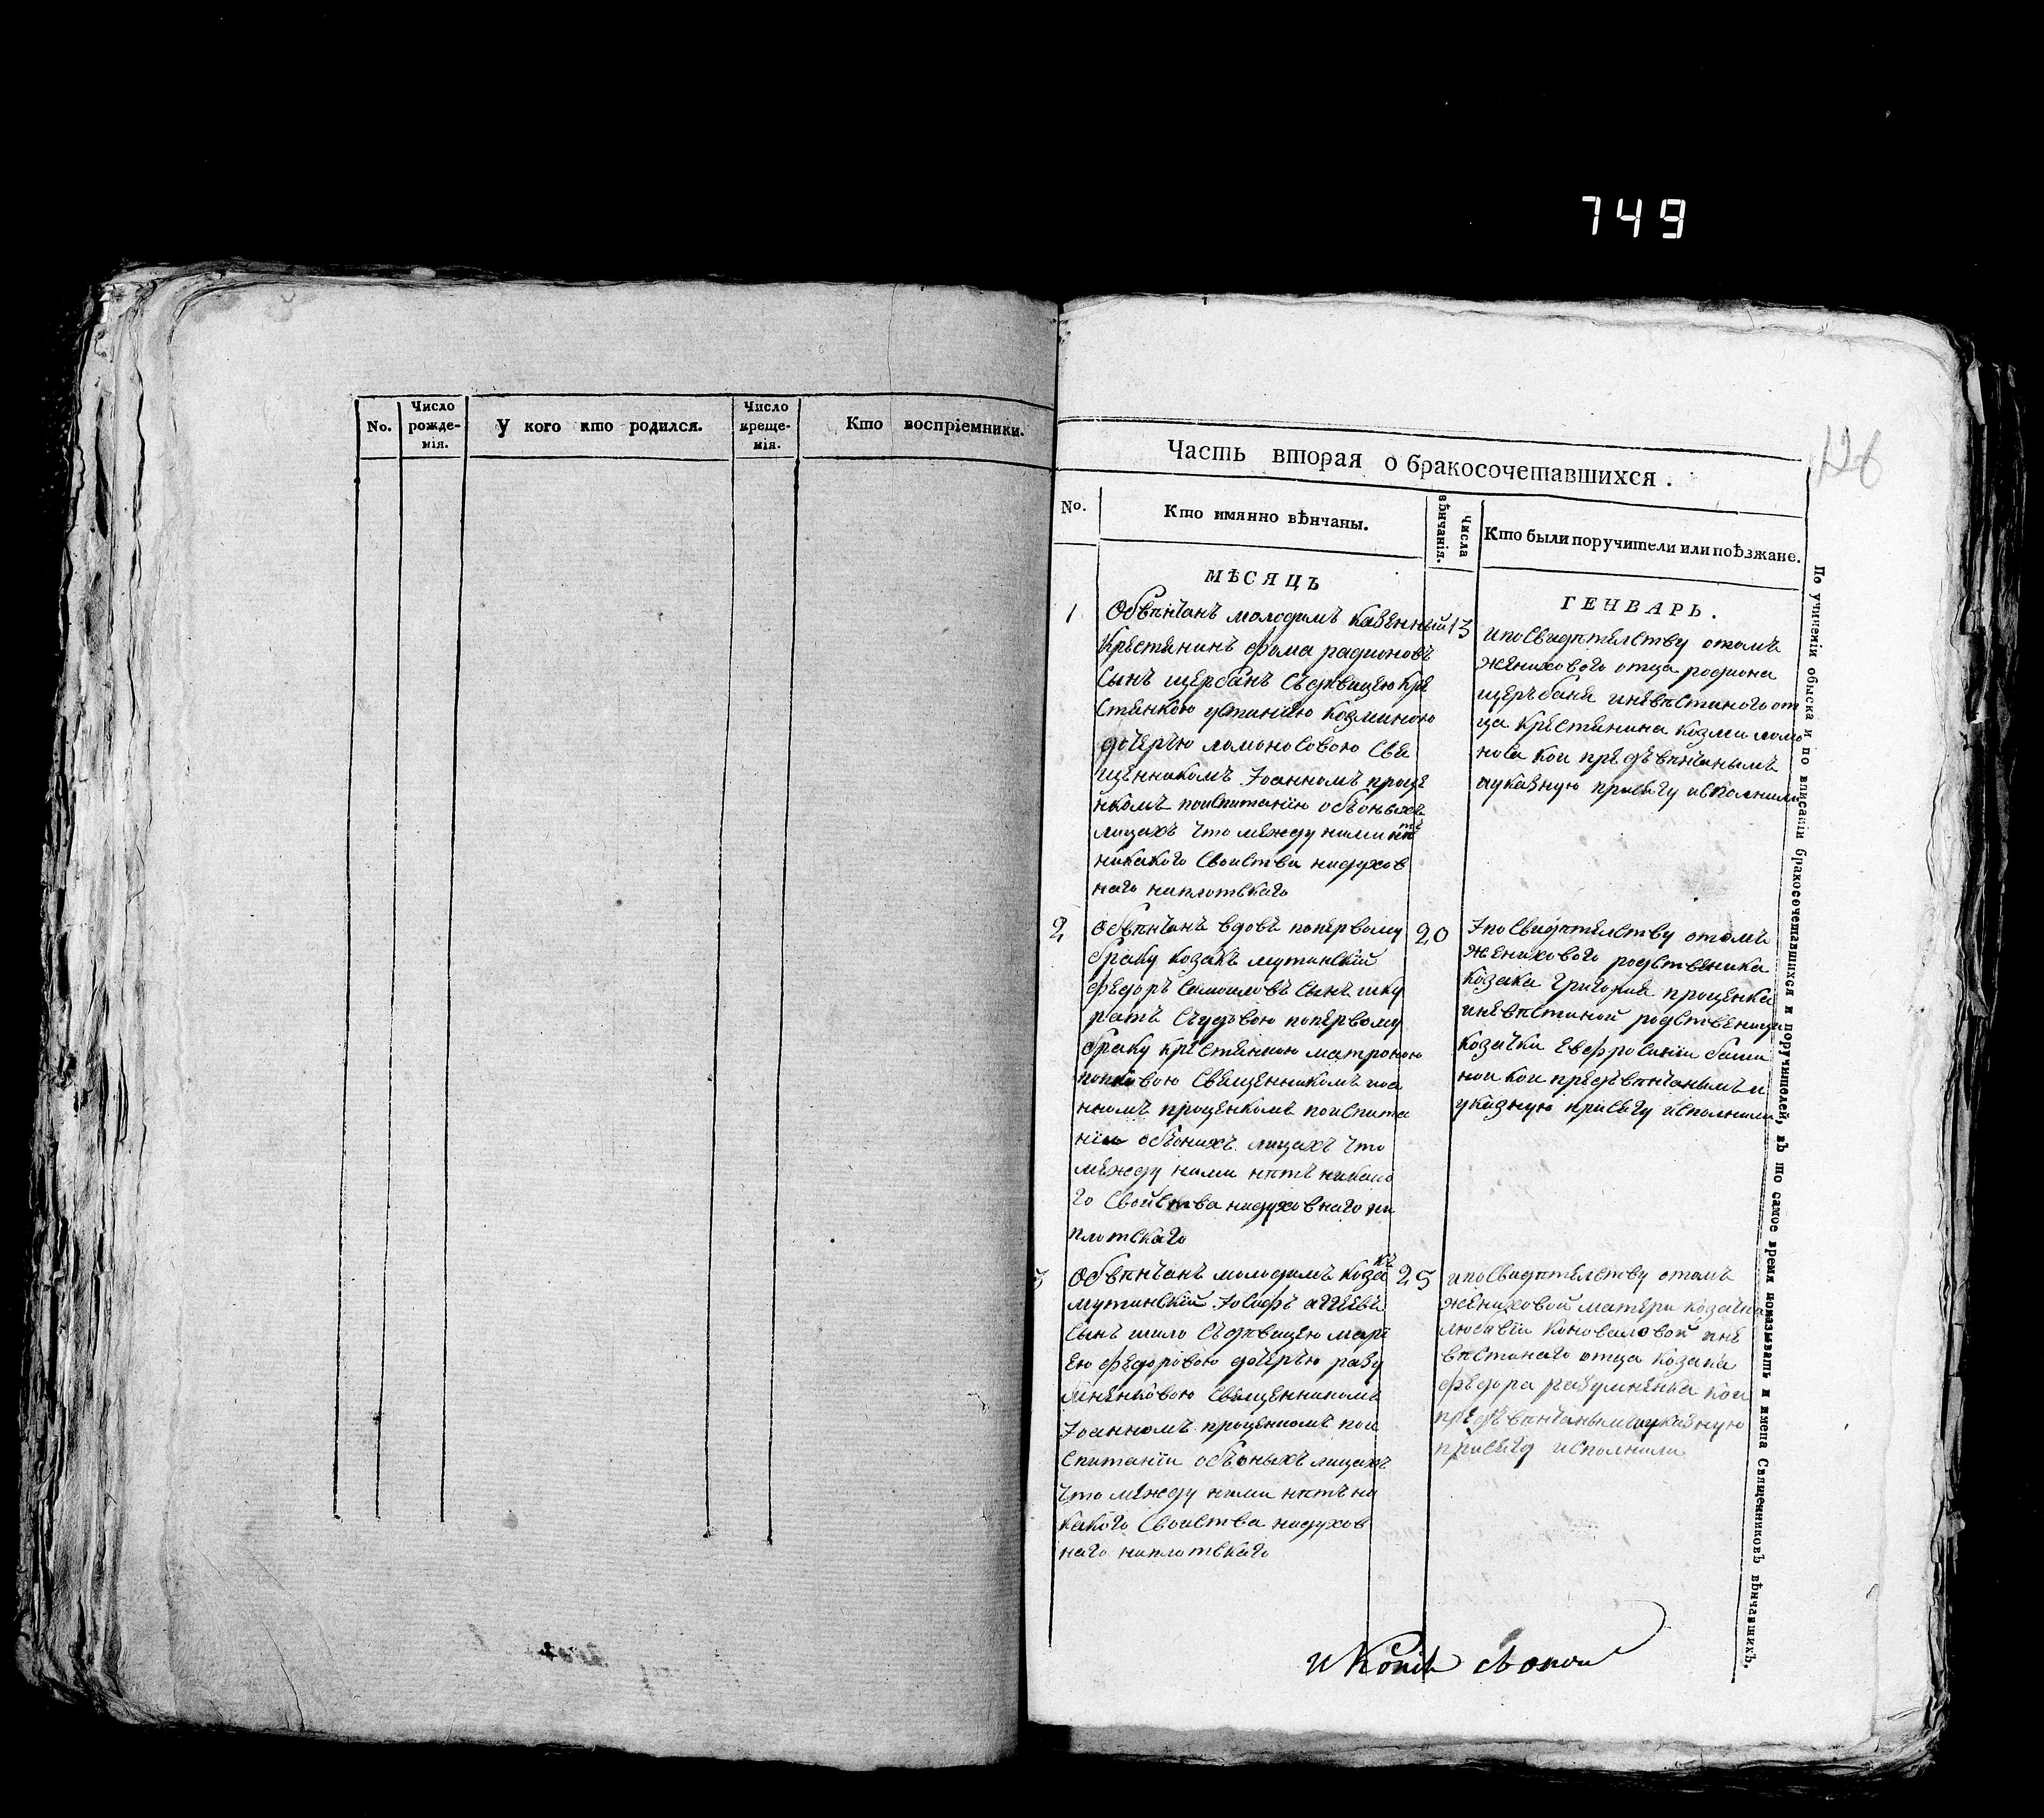 749
No.
Число рожде-нія.
У кого кто родился.
Число креще-нія.
Кто воспріемники.
126
Часть вторая о бракосочетавшихся.
No.
Кто имянно вѣнчаны.
числа вѣнчанія.
Кто были поручители или поѣзжане.
МѢСЯЦЪ
ГЕНВАРЬ.
1
Обвѣнчанъ молодымъ казенный
крестянинъ фома радионовъ
сынъ щербанъ съдѣвицею кре
стянкою устиниею козминою
дочерью ломоносовою свя
щенникомъ Іоанномъ проце
нкомъ поиспитанію обѣоныхъ
лицахъ что между ними нѣтъ
никакого своиства нидухов
наго ниплотскаго
13
ипосвидѣтелству отомъ
женихового отца родиона
щеръбаня иневѣстиного от
ца крестянина козми ломо
носа кои предъвѣнчанымъ
иуказную присягу исполнили
2
Обвѣнчанъ вдовъ поперво­му
браку козакъ мутинскій
федоръ самоиловъ сынъ шку
ратъ съвдовою попервому
браку крестянкою матроною
поповою священникомъ иоа
нномъ проценкомъ поиспита
ніи обѣонихъ лицахъ что
между ними нѣтъ никако
го свойства нидуховнаго ни
плотскаго
20
Іпосвидѣтелству отомъ
женихового родственика
козака григория проценка
иневѣстиной родственици
козачки евфросиніи баши
нои кои предъвѣнчанымъ и
указную присягу исполнили
3
Обвѣнчанъ молодымъ козакъ
мутинскій Іосифъ аггеевъ
сынъ шило съдѣвицею марі
ею федоровою дочерью разу
мненковою священникомъ
Іоанномъ проценкомъ пои
спитаніи обѣоныхъ лицахъ
что между ними нѣтъ ни
какого своиства нидухов
наго ниплотскаго
25
ипосвидѣтелству отомъ
жениховой матери козачки
коноваловой ине
вѣстинаго отца козака
федора разумненка кои
предъвѣнчанымъ иуказную
присягу исполнили
По учиненіи обыска и по вписаніи бракосочетавшихся и поручителей, въ то самое время показывать и имена Священниковъ вѣнчавшихъ.